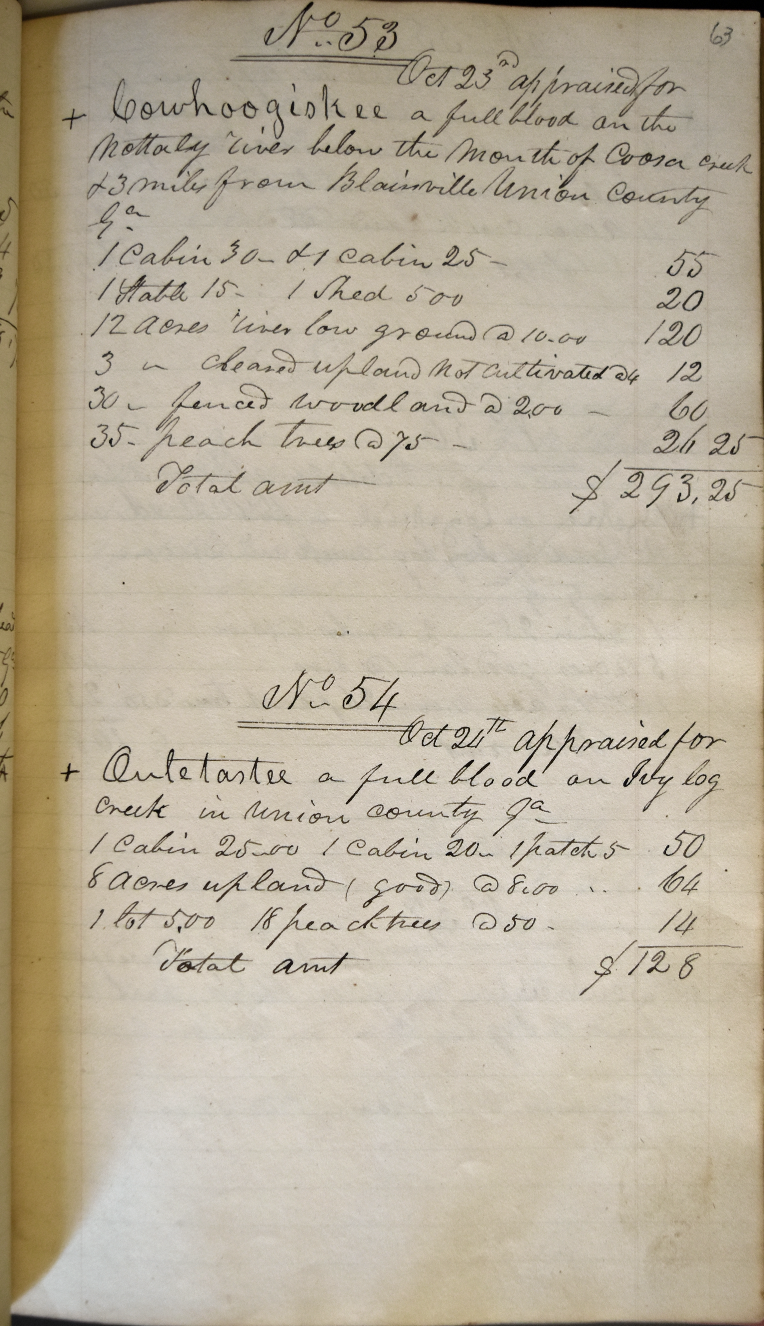 63
No 53
Oct 23rd appraised for
+ Cowhoogiskee a full blood on the
Nottaly river below the Mouth of Coosa creek
& 3 miles from Blairsville Union County
Ga
1 Cabin 30- & 1 cabin 25- 55
1 Stable 15- 1 Shed 500 20
12 Acres river low ground @ 10.00 120
3 " cleared upland not cultivated @4 12
30 " fenced woodland @ 2.00 - 60
35- peach trees @ 75 - 26 25
Total amt $ 293.25
No 54
Oct 24th appraised for
+ Outetastee a full blood on Ivy log
creek in Union county Ga
1 Cabin 25.00 1 Cabin 20- 1 patch 5 50
8 Acres upland (good) @ 8.00 .. 64
1 lot 5.00 18 peach trees @ 50- 14
Total amt $ 128